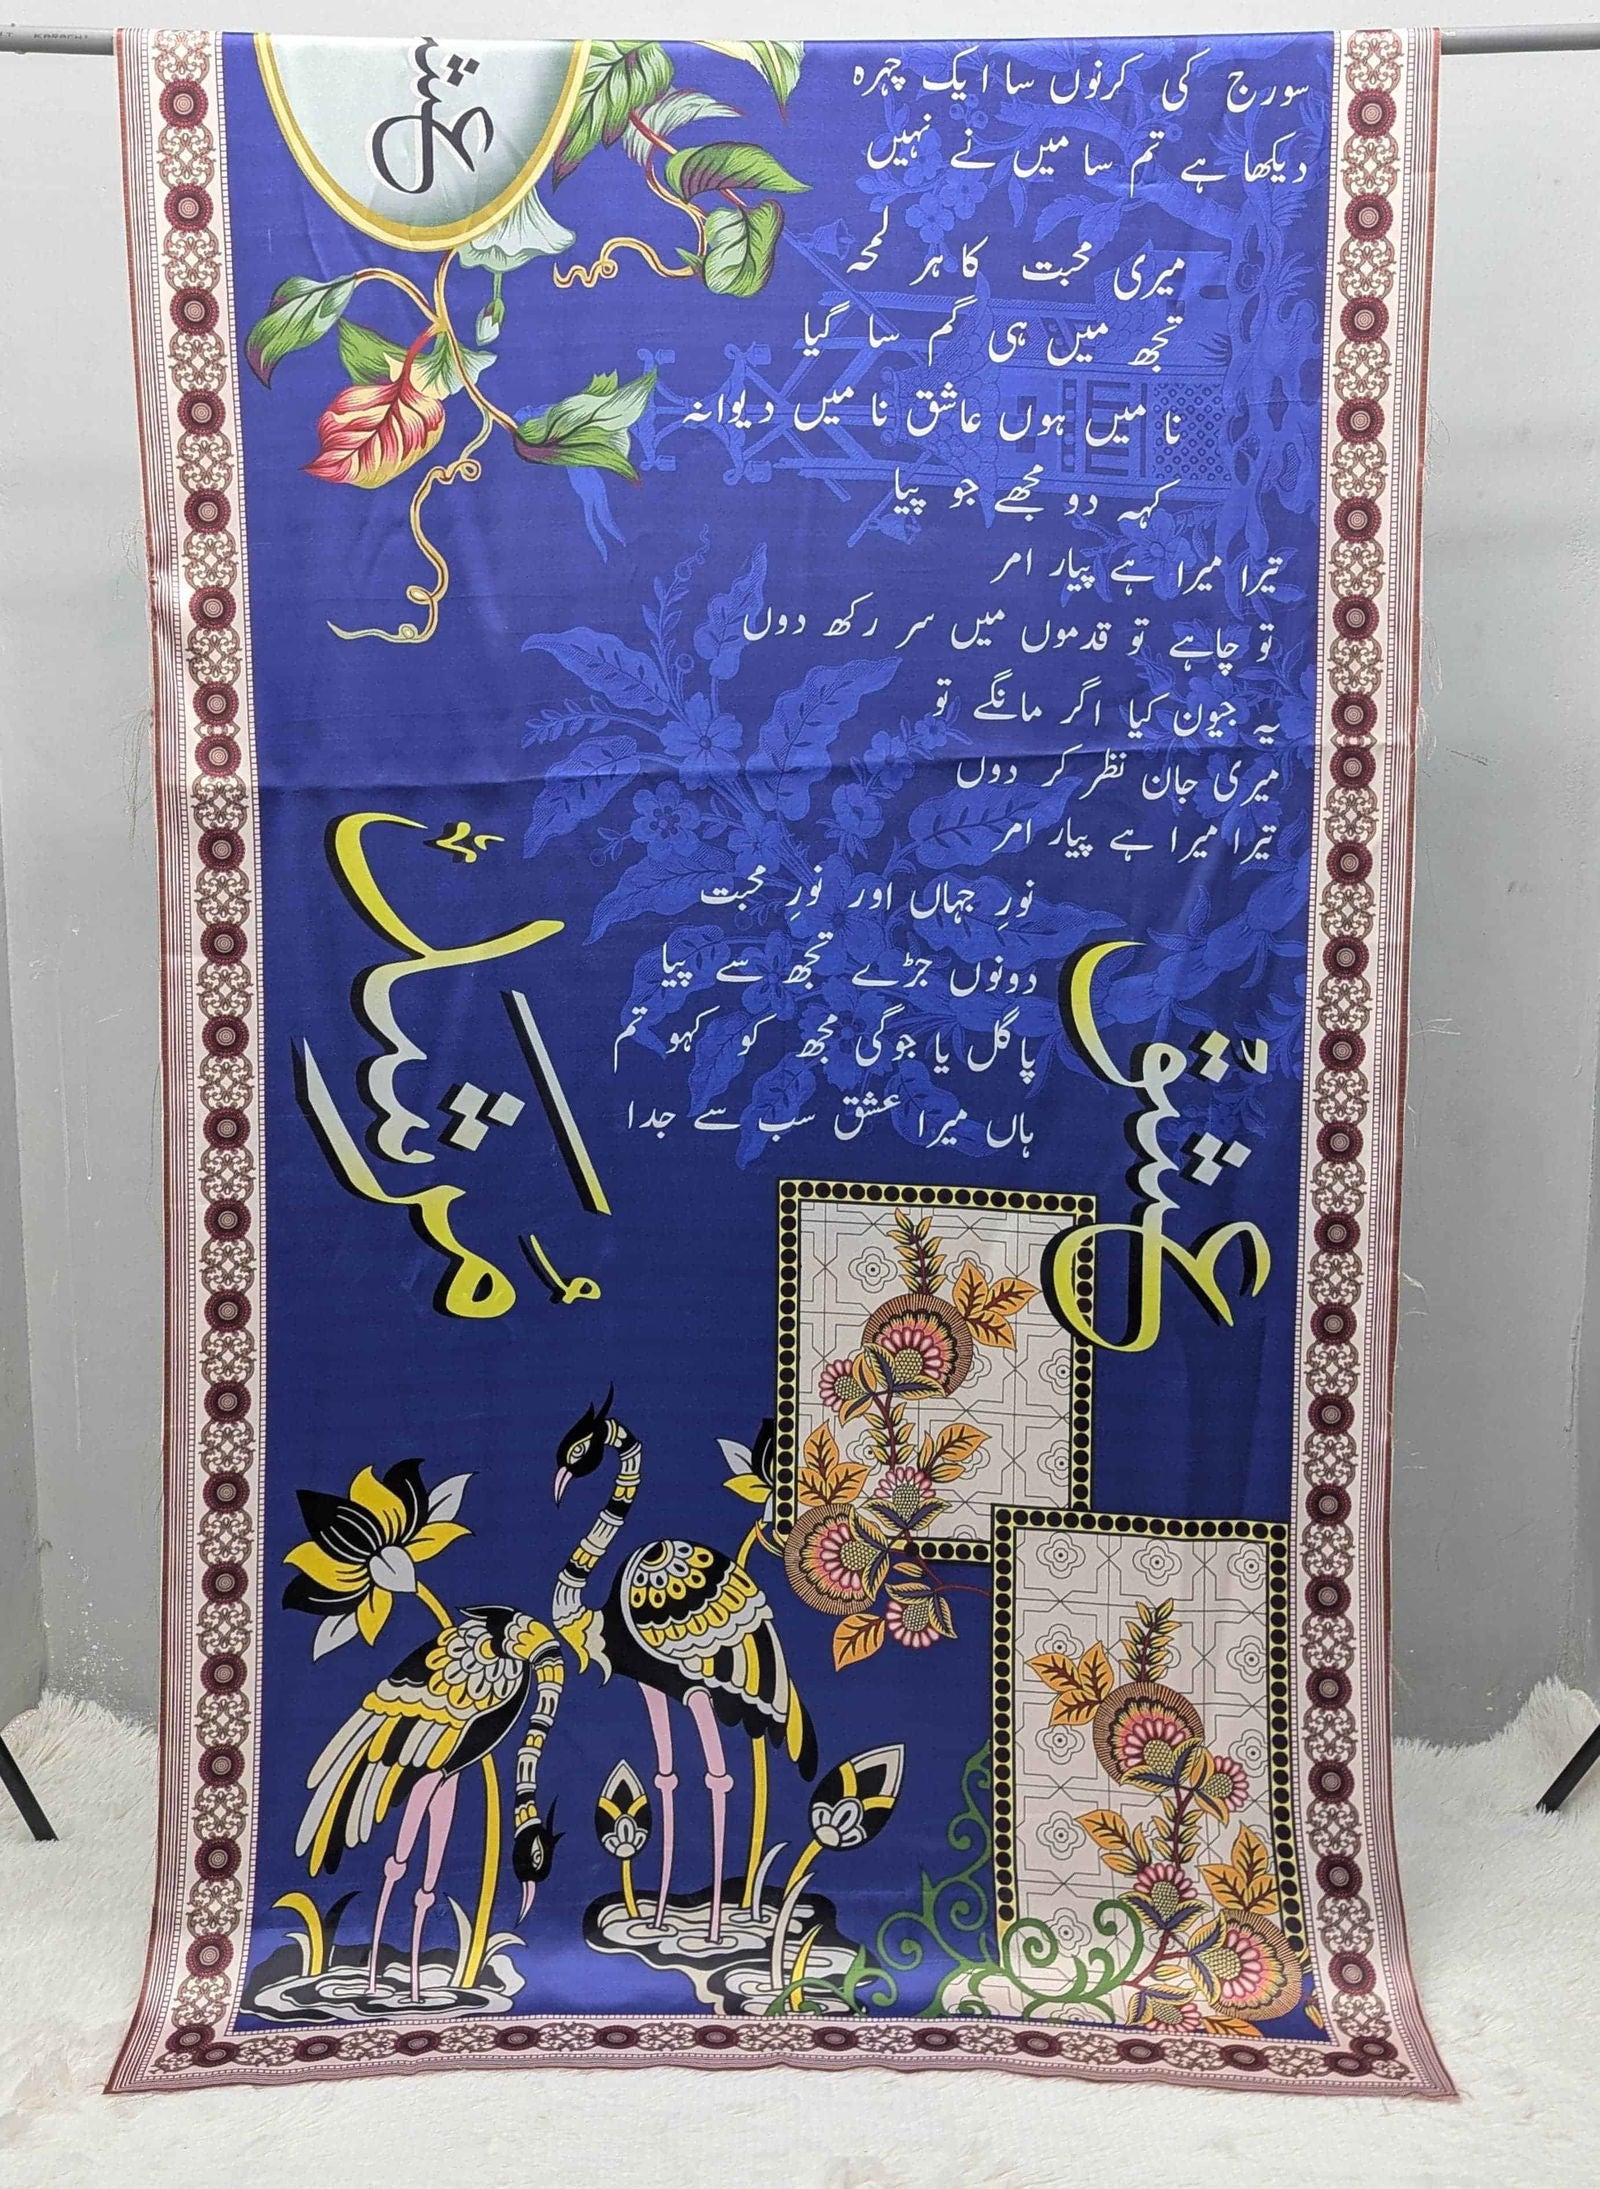 KARACHI
عشق
سورج کی کرنوں سا ایک چہرہ
دیکھا ہے تم سا میں نے نہیں
میری محبت کا ہر لمحہ
تجھ میں ہی گم سا گیا
نا میں ہوں عاشق نا میں دیوانہ
کہہ دو مجھے جو پیا
تیرا میرا ہے پیار امر
تو چاہے تو قدموں میں سر رکھ دوں
یہ جیون کیا اگر مانگے تو
میری جان نظر کر دوں
تیرا میرا ہے پیار امر
نورِ جہاں اور نورِ محبت
دونوں جڑے تجھ سے پیا
پاگل یا جوگی مجھ کو کہو تم
ہاں میرا عشق سب سے جدا
عشق
مُرشد